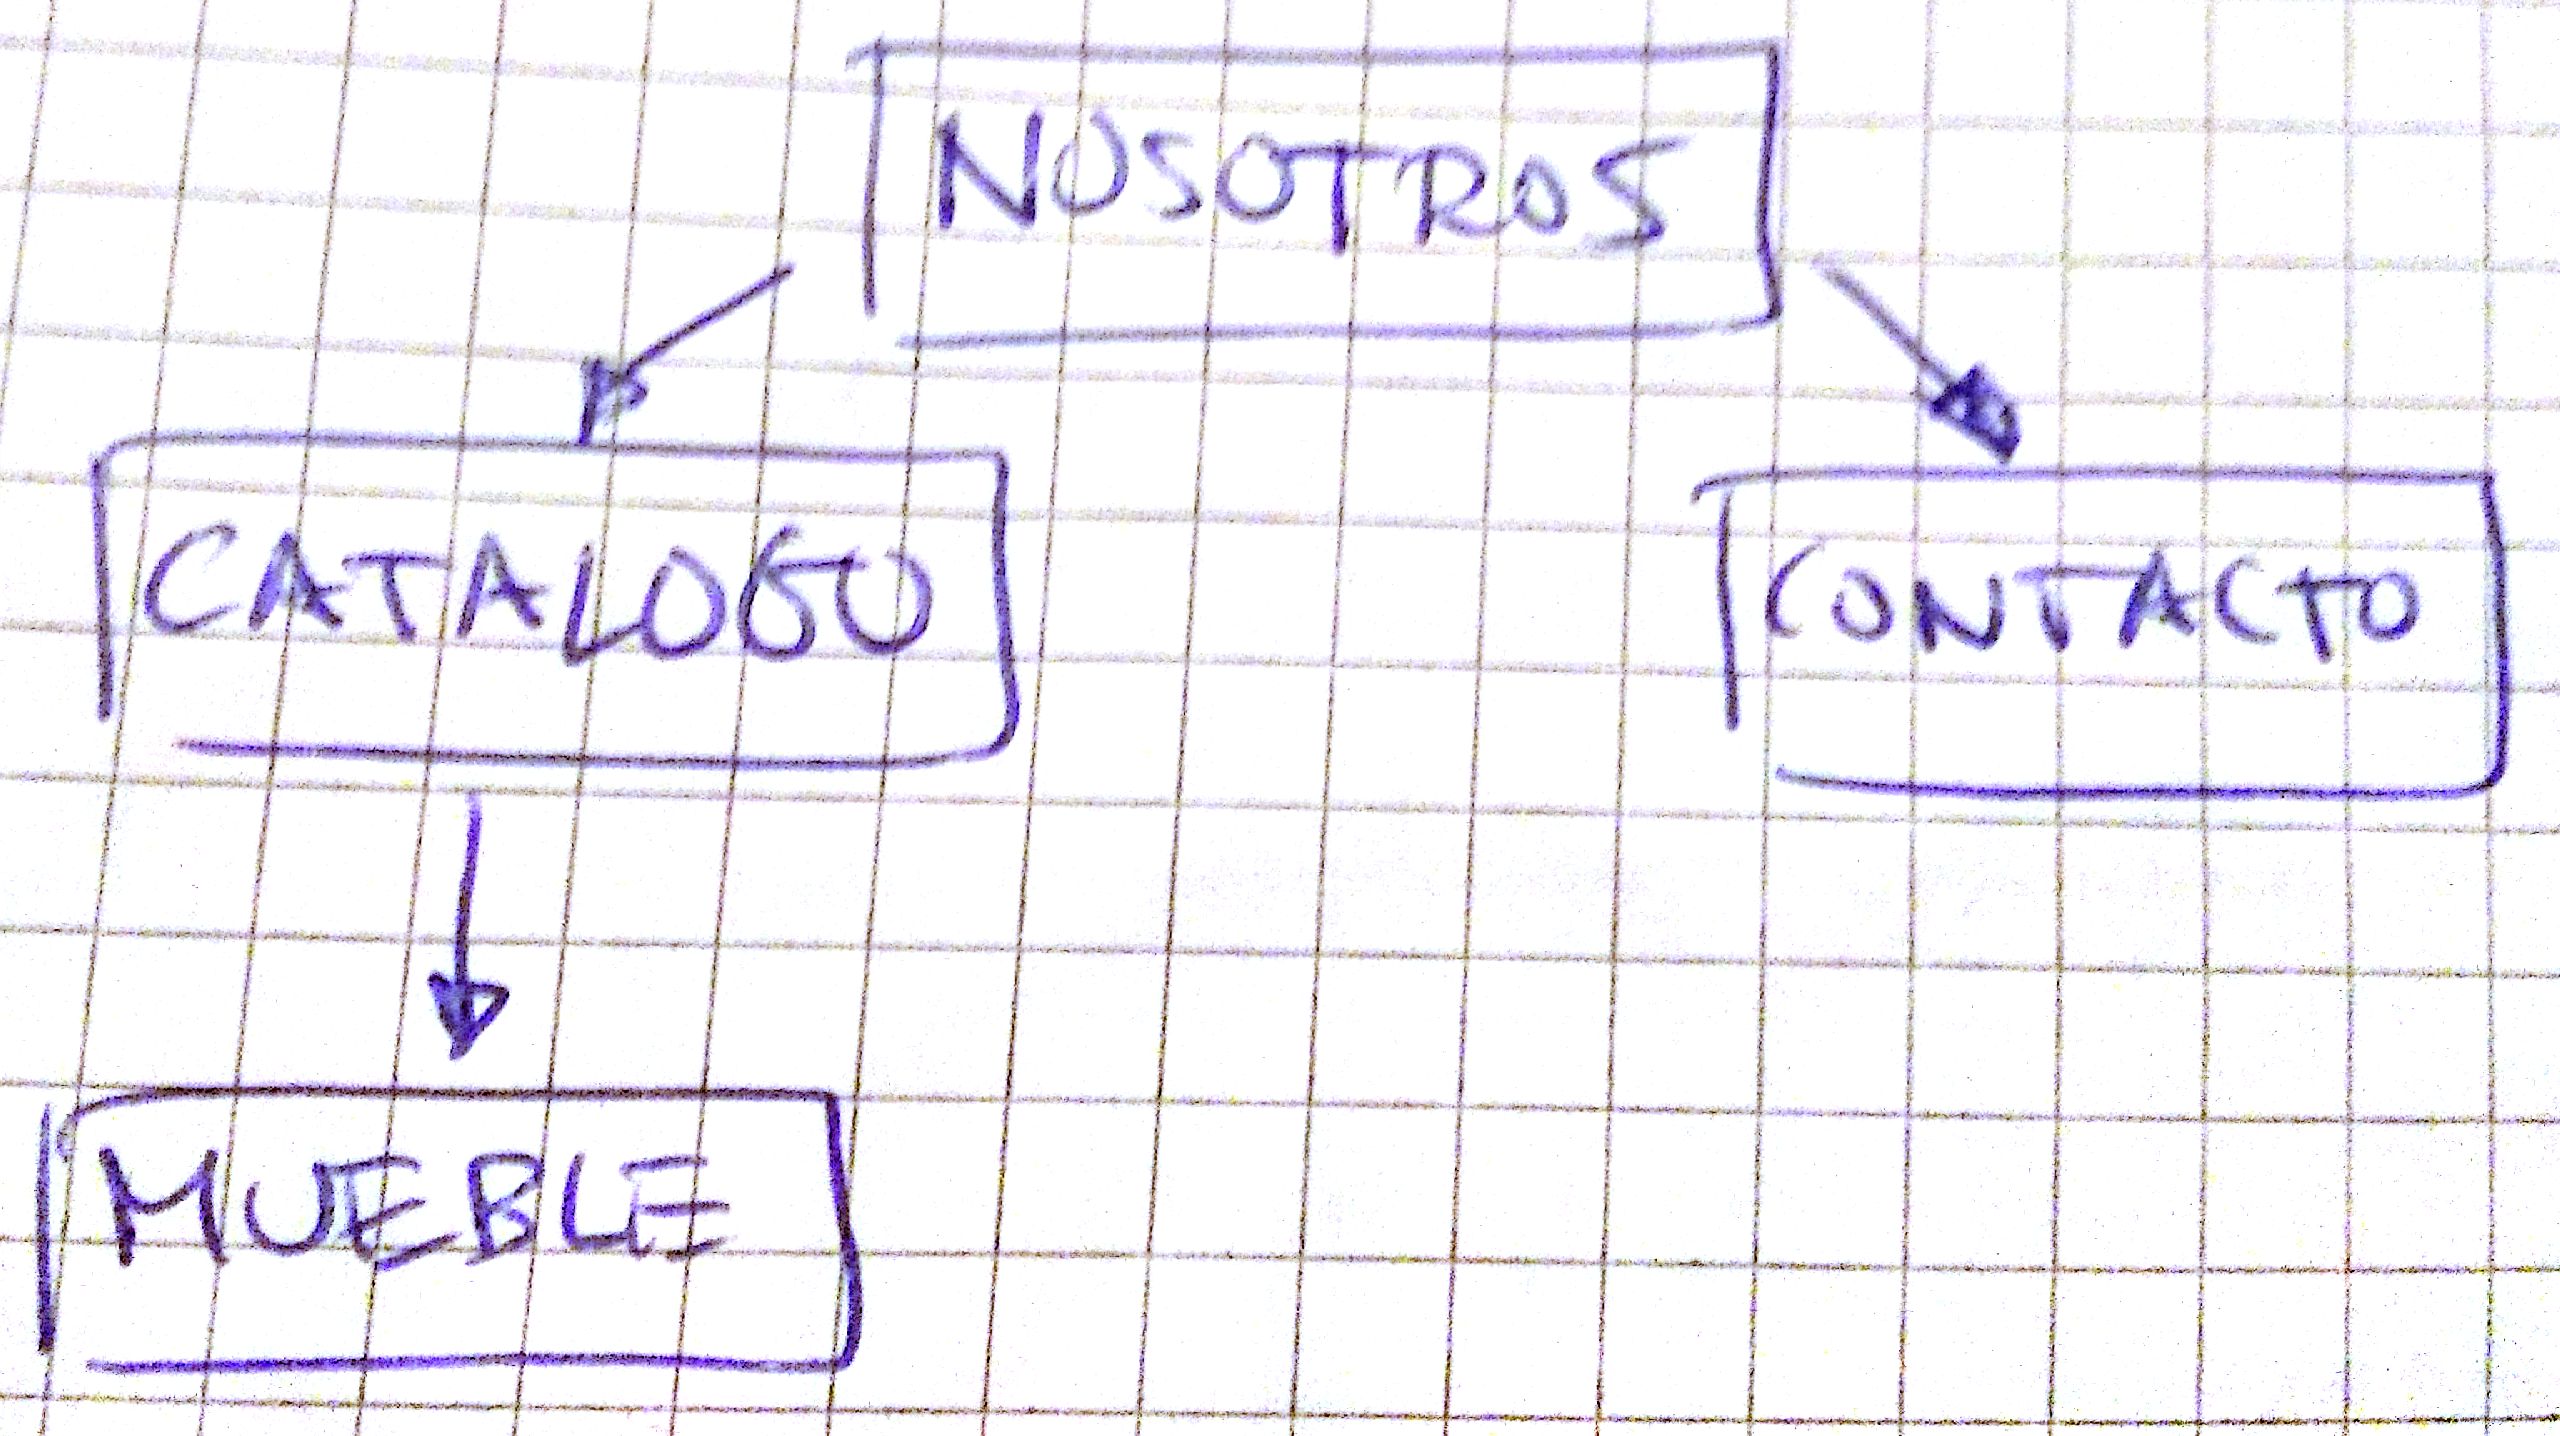 NOSOTROS
CATALOGO
CONTACTO
MUEBLE